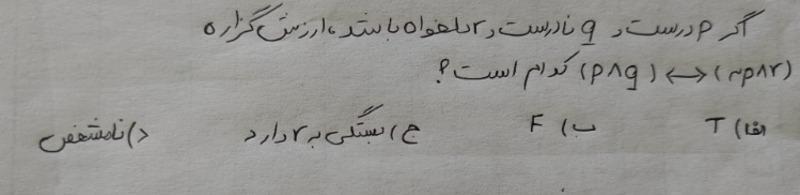 اگر p درست و q نادرست و r دلخواه باشد، ارزش گزاره
(p∧q) ⟷ (~p∧r) کدام است؟
الف) T ب) F ج) بستگی به r دارد د) نامشخص